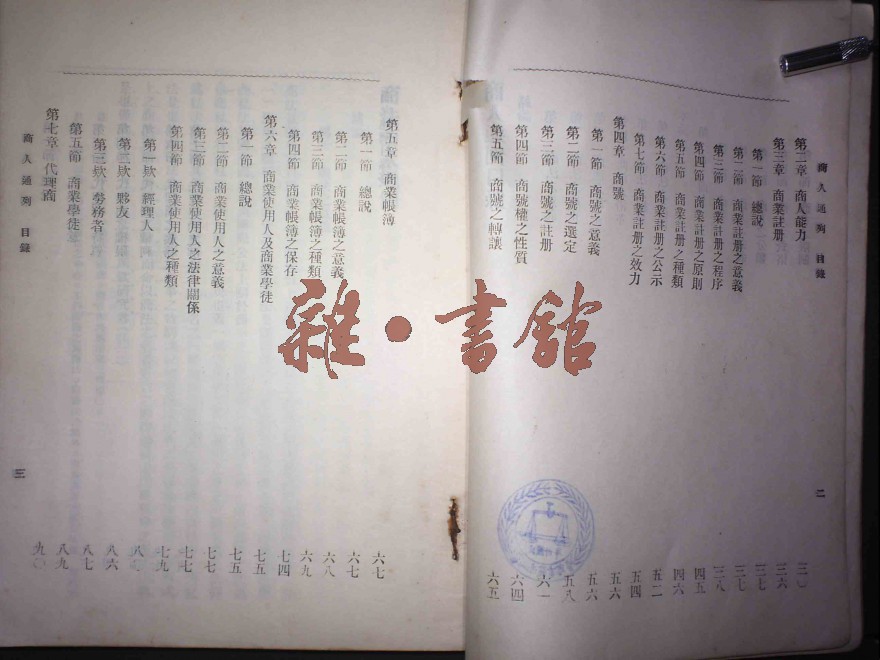 商人通例 目錄
二
第二章 商人能力 三〇
第三章 商業註册 三六
第一節 總說 三七
第二節 商業註册之意義 三七
第三節 商業註册之程序 三八
第四節 商業註册之原則 四五
第五節 商業註册之種類 四六
第六節 商業註册之公示 五二
第七節 商業註册之效力 五四
第四章 商號 五六
第一節 商號之意義 五六
第二節 商號之選定 五八
第三節 商號之註册 六一
第四節 商號權之性質 六四
第五節 商號之轉讓 六五
第五章 商業帳簿 六七
第一節 總說 六七
第二節 商業帳簿之意義 六八
第三節 商業帳簿之種類 六九
第四節 商業帳簿之保存 七四
第六章 商業使用人及商業學徒 七五
第一節 總說 七五
第二節 商業使用人之意義 七七
第三節 商業使用人之法律關係 七七
第四節 商業使用人之種類 七九
第一欵 經理人 八〇
第二欵 夥友 八六
第三欵 勞務者 八七
第五節 商業學徒 八九
第七章 代理商 九〇
商人通例 目錄
三
雜·書館